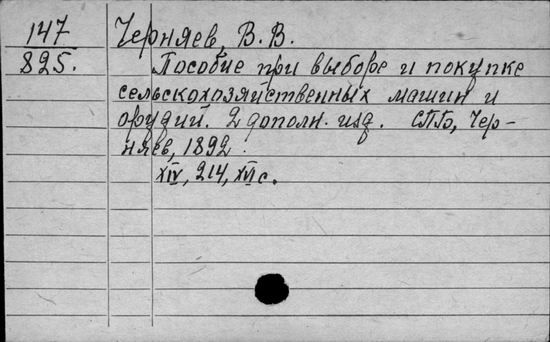 147 Черняев, В. В.
825. Пособие при выборе и покупке
сельскохозяйственных машин и
орудий. 2 дополн. изд. СПБ, Чер-
няев, 1892.
XIV, 214, XVI с.